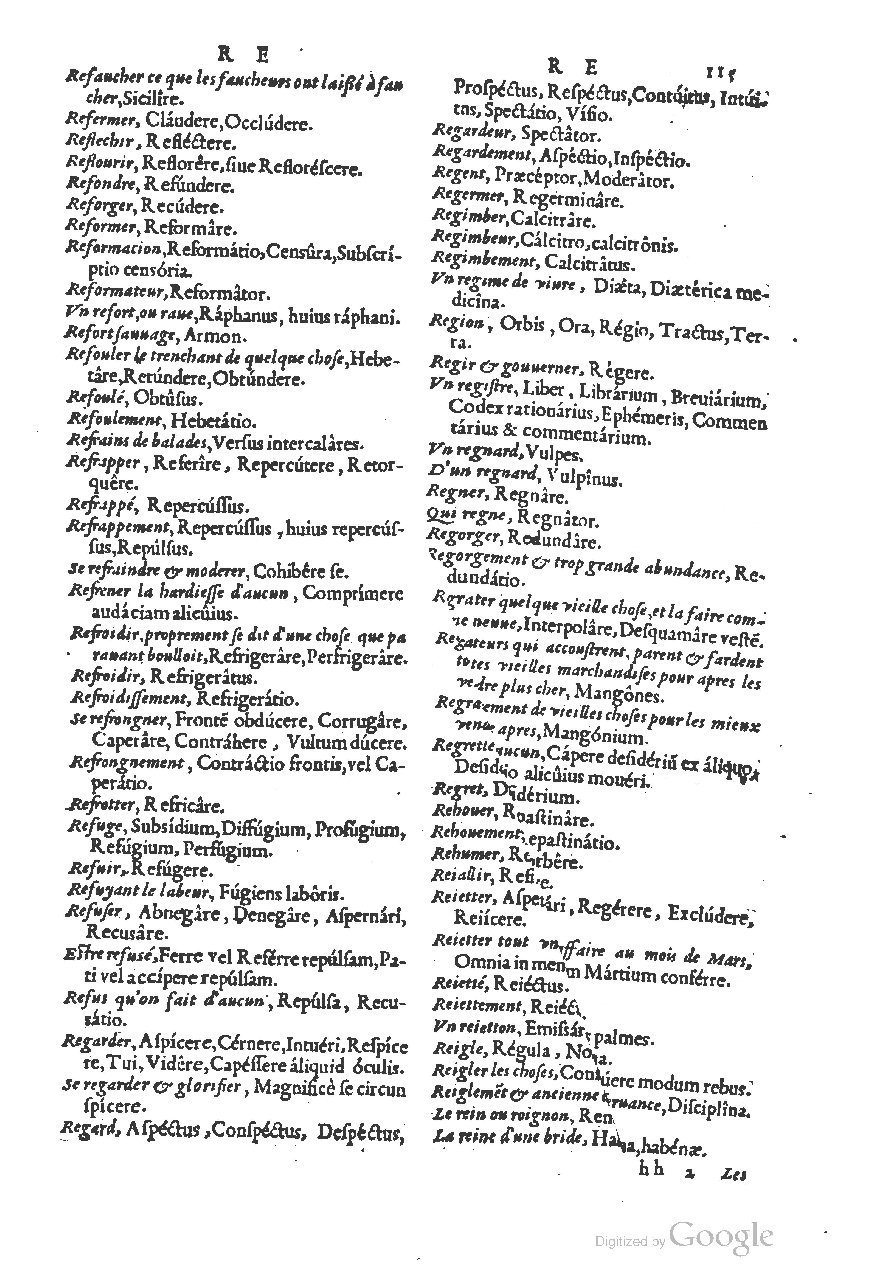 R E
Refaucher ce que les faucheurs ont laißé à fau
cher, Sicilîre.
Refermer, Cláudere, Occlúdere.
Reflechir, Refléctere.
Reflourir, Reflorêre, ſiue Refloréſcere.
Refondre, Refúndere.
Reforger, Recúdere.
Reformer, Reformâre.
Reformacion, Reformátio, Cenſûra, Subſcrí-
ptio censória.
Reformateur, Reformâtor.
Vn refort, ou raue, Ráphanus, huius ráphani.
Refort ſauuage, Armon.
Refouler le trenchant de quelque choſe, Hebe-
târe, Retúndere, Obtúndere.
Refoulé, Obtûſus.
Refoulement, Hebetátio.
Refrains de balades, Verſus intercalâres.
Refrapper, Referîre, Repercútere, Retor-
quêre.
Refrappé, Repercúſſus.
Refrappement, Repercúſſus, huius repercúſ-
ſus, Repúlſus.
Se refraindre & moderer, Cohibêre ſe.
Refrener la hardieſſe d'aucun, Comprímere
audáciam alicûius.
Refroidir, proprement ſe dit d'une choſe que pa
rauant boulloit, Refrigerâre, Perfrigerâre.
Refroidir, Refrigerâtus.
Refroidiſſement, Refrigerátio.
Se refrongner, Frontē obdúcere, Corrugâre,
Caperâre, Contráhere, Vultum dúcere.
Refrongnement, Contráctio frontis, vel Ca-
perátio.
Refrotter, Refricâre.
Refuge, Subsídium, Diffúgium, Profúgium,
Refúgium, Perfúgium.
Refuir, Refúgere.
Refuyant le labeur, Fúgiens labôris.
Refuſer, Abnegâre, Denegâre, Aſpernári,
Recusâre.
Eſtre refusé, Ferre vel Reférre repúlſam, Pa-
ti vel accípere repúlſam.
Refus qu'on fait d'aucun, Repúlſa, Recu-
sátio.
Regarder, Aſpícere, Cérnere, Intuéri, Reſpíce
re, Tui, Vidêre, Capéſſere áliquid óculis.
Se regarder & glorifier, Magnificè ſe circun
ſpícere.
Regard, Aſpéctus, Conſpéctus, Deſpéctus,
R E 115
Proſpéctus, Reſpéctus, Contúitus, Intúi-
tus, Spectátio, Víſio.
Regardeur, Spectâtor.
Regardement, Aſpéctio, Inſpéctio.
Regent, Præcéptor, Moderâtor.
Regermer, Regerminâre.
Regimber, Calcitrâre.
Regimbeur, Cálcitro, calcitrônis.
Regimbement, Calcitrâtus.
Vn regime de viure, Diǽta, Diætérica me-
dicîna.
Region, Orbis, Ora, Régio, Tractus, Ter-
ra.
Regir & gouuerner, Régere.
Vn regiſtre, Liber, Librárium, Breuiárium,
Codex rationárius, Ephémeris, Commen
tárius & commentárium.
Vn regnard, Vulpes.
D'un regnard, Vulpînus.
Regner, Regnâre.
Qui regne, Regnâtor.
Regorger, Redundâre.
Regorgement & trop grande abundance, Re-
dundátio.
Rgrater quelque vieille choſe, et la faire com-
me neuue, Interpolâre, Deſquamâre veſtē.
Regateurs qui accouſtrent, parent & fardent
totes vieilles marchandiſes pour apres les
vedre plus cher, Mangônes.
Regratement de vieilles choſes pour les mieux
venue apres, Mangónium.
aucun, Cápere deſidériũ ex áliquo,
alicûius mouéri.
Regret,
Rehouer,
Rehouement, epaſtinátio.
Rehumer,
Reiallir,
Reietter, Aſpernári, Regérere, Exclúdere,
Reiícere.
Reietter tout affaire au mois de Mars,
Omnia in menſem Mártium conférre.
Reietté, Reiéctus.
Reiettement,
Vn reietton, palmes.
Reigle, Régula,
Reigler les choſes, modum rebus.
Reiglemēt & ancienne Diſciplîna.
Le rein ou roignon, Ren
La reine d'une bride, habénæ.
hh 2 Les
Digitized by Google